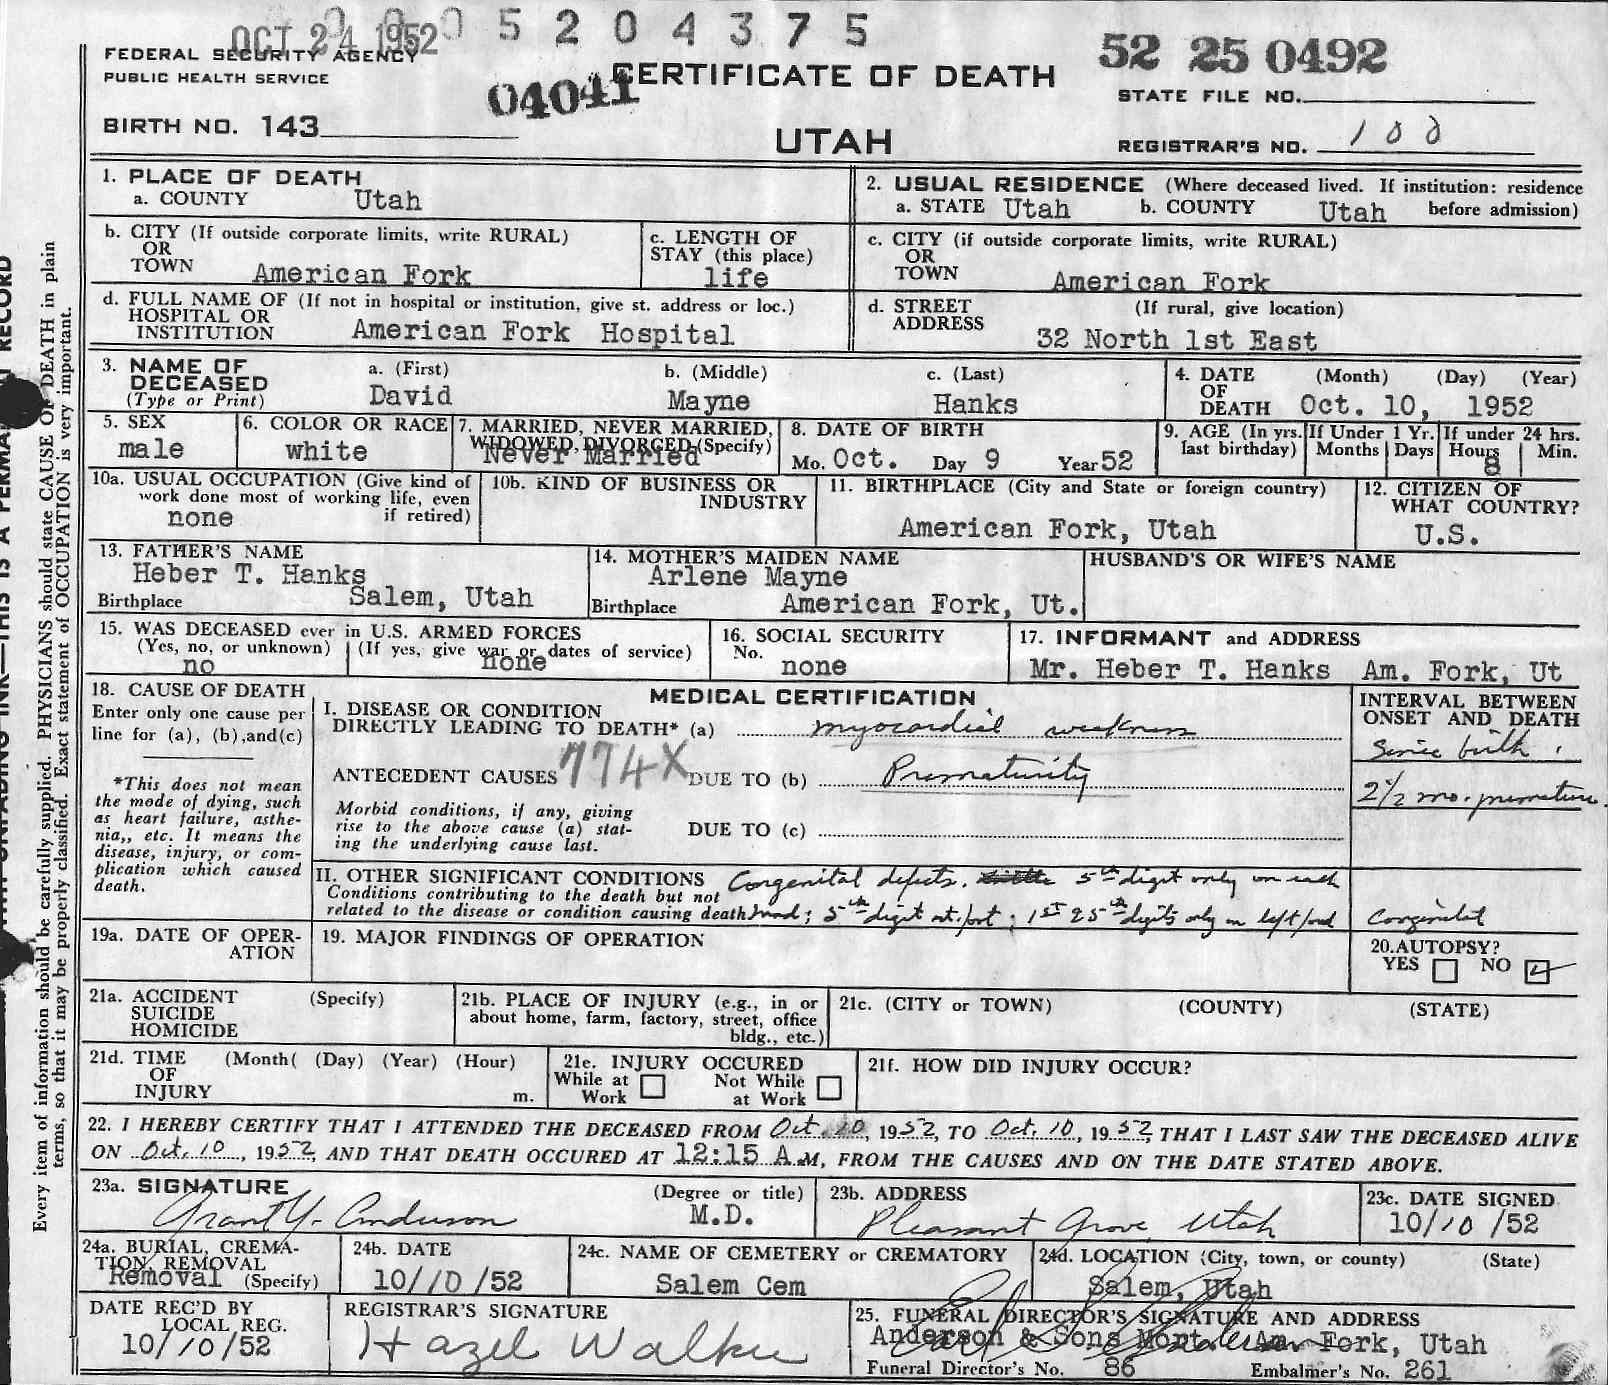 OCT 24 1952
0005204375
FEDERAL SECURITY AGENCY
PUBLIC HEALTH SERVICE
04041
CERTIFICATE OF DEATH
52 25 0492
STATE FILE NO.
BIRTH NO. 143
UTAH
REGISTRAR'S NO. 100
1. PLACE OF DEATH
a. COUNTY Utah
2. USUAL RESIDENCE (Where deceased lived. If institution: residence
a. STATE Utah b. COUNTY Utah before admission)
b. CITY (If outside corporate limits, write RURAL)
OR
TOWN American Fork
c. LENGTH OF
STAY (this place)
life
c. CITY (if outside corporate limits, write RURAL)
OR
TOWN American Fork
d. FULL NAME OF (If not in hospital or institution, give st. address or loc.)
HOSPITAL OR
INSTITUTION American Fork Hospital
d. STREET (If rural, give location)
ADDRESS
32 North 1st East
3. NAME OF
DECEASED
(Type or Print)
a. (First) b. (Middle) c. (Last)
David Mayne Hanks
4. DATE (Month) (Day) (Year)
OF
DEATH Oct. 10, 1952
5. SEX
male
6. COLOR OR RACE
white
7. MARRIED, NEVER MARRIED,
WIDOWED, DIVORCED (Specify)
Never Married
8. DATE OF BIRTH
Mo. Oct. Day 9 Year 52
9. AGE (In yrs. last birthday)
If Under 1 Yr.
Months Days
If under 24 hrs.
Hours Min.
8
10a. USUAL OCCUPATION (Give kind of
work done most of working life, even
if retired)
none
10b. KIND OF BUSINESS OR
INDUSTRY
11. BIRTHPLACE (City and State or foreign country)
American Fork, Utah
12. CITIZEN OF
WHAT COUNTRY?
U.S.
13. FATHER'S NAME
Heber T. Hanks
Birthplace Salem, Utah
14. MOTHER'S MAIDEN NAME
Arlene Mayne
Birthplace American Fork, Ut.
HUSBAND'S OR WIFE'S NAME
15. WAS DECEASED ever in U.S. ARMED FORCES
(Yes, no, or unknown) (If yes, give war or dates of service)
no none
16. SOCIAL SECURITY
No.
none
17. INFORMANT and ADDRESS
Mr. Heber T. Hanks Am. Fork, Ut
18. CAUSE OF DEATH
Enter only one cause per
line for (a), (b),and(c)
*This does not mean
the mode of dying, such
as heart failure, asthe-
nia,, etc. It means the
disease, injury, or com-
plication which caused
death.
MEDICAL CERTIFICATION
I. DISEASE OR CONDITION
DIRECTLY LEADING TO DEATH* (a) myocardial weakness
ANTECEDENT CAUSES 774X DUE TO (b) Prematurity
Morbid conditions, if any, giving
rise to the above cause (a) stat-
ing the underlying cause last.
DUE TO (c)
INTERVAL BETWEEN
ONSET AND DEATH
Since birth.
2½ mo. premature.
II. OTHER SIGNIFICANT CONDITIONS Congenital defects. 5th digit only on each
Conditions contributing to the death but not
related to the disease or condition causing death hand; 5th digit rt. foot; 1st & 5th digits only on left foot
Congenital
19a. DATE OF OPER-
ATION
19. MAJOR FINDINGS OF OPERATION
20. AUTOPSY?
YES NO
21a. ACCIDENT (Specify)
SUICIDE
HOMICIDE
21b. PLACE OF INJURY (e.g., in or
about home, farm, factory, street, office
bldg., etc.)
21c. (CITY or TOWN) (COUNTY) (STATE)
21d. TIME (Month( (Day) (Year) (Hour)
OF
INJURY m.
21e. INJURY OCCURED
While at Work Not While at Work
21f. HOW DID INJURY OCCUR?
22. I HEREBY CERTIFY THAT I ATTENDED THE DECEASED FROM Oct. 10, 1952, TO Oct. 10, 1952, THAT I LAST SAW THE DECEASED ALIVE
ON Oct. 10, 1952, AND THAT DEATH OCCURED AT 12:15 A.M, FROM THE CAUSES AND ON THE DATE STATED ABOVE.
23a. SIGNATURE (Degree or title)
Grant Y. Anderson M.D.
23b. ADDRESS
Pleasant Grove, Utah
23c. DATE SIGNED
10/10/52
24a. BURIAL, CREMA-
TION, REMOVAL
Removal (Specify)
24b. DATE
10/10/52
24c. NAME OF CEMETERY or CREMATORY
Salem Cem
24d. LOCATION (City, town, or county) (State)
Salem, Utah
DATE REC'D BY
LOCAL REG.
10/10/52
REGISTRAR'S SIGNATURE
Hazel Walker
25. FUNERAL DIRECTOR'S SIGNATURE AND ADDRESS
Anderson & Sons Mort. Am Fork, Utah
Funeral Director's No. 86 Embalmer's No. 261
Every item of information should be carefully supplied. PHYSICIANS should state CAUSE OF DEATH in plain
terms, so that it may be properly classified. Exact statement of OCCUPATION is very important.
INK—THIS IS A PERMANENT RECORD